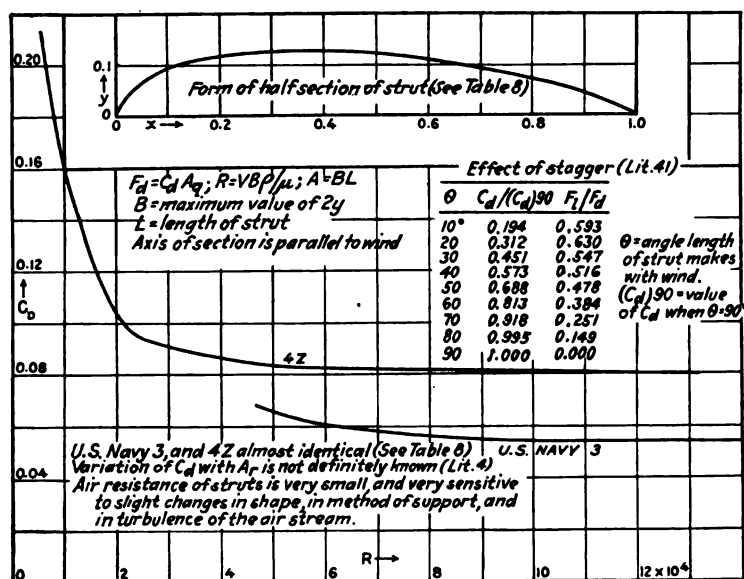 0.20
0.1
y
0
x
0.2
0.4
0.6
0.8
1.0
Form of half section of strut (See Table 8)
0.16
F_d=C_d A_q; R=VBρ/μ; A=BL
B=maximum value of 2y
L=length of strut
Axis of section is parallel to wind
Effect of stagger (Lit.41)
θ C_d/(C_d)90 F_l/F_d
10° 0.194 0.593
20 0.312 0.630
30 0.451 0.547
40 0.573 0.516
50 0.688 0.478
60 0.813 0.384
70 0.918 0.251
80 0.995 0.149
90 1.000 0.000
θ=angle length
of strut makes
with wind.
(C_d)90=value
of C_d when θ=90°
0.12
C_D
4Z
0.08
U.S. Navy 3, and 4Z almost identical (See Table 8)
U.S. NAVY 3
Variation of C_d with A_r is not definitely known (Lit.4)
0.04
Air resistance of struts is very small, and very sensitive
to slight changes in shape, in method of support, and
in turbulence of the air stream.
R
0
2
4
6
8
10
12×10⁴